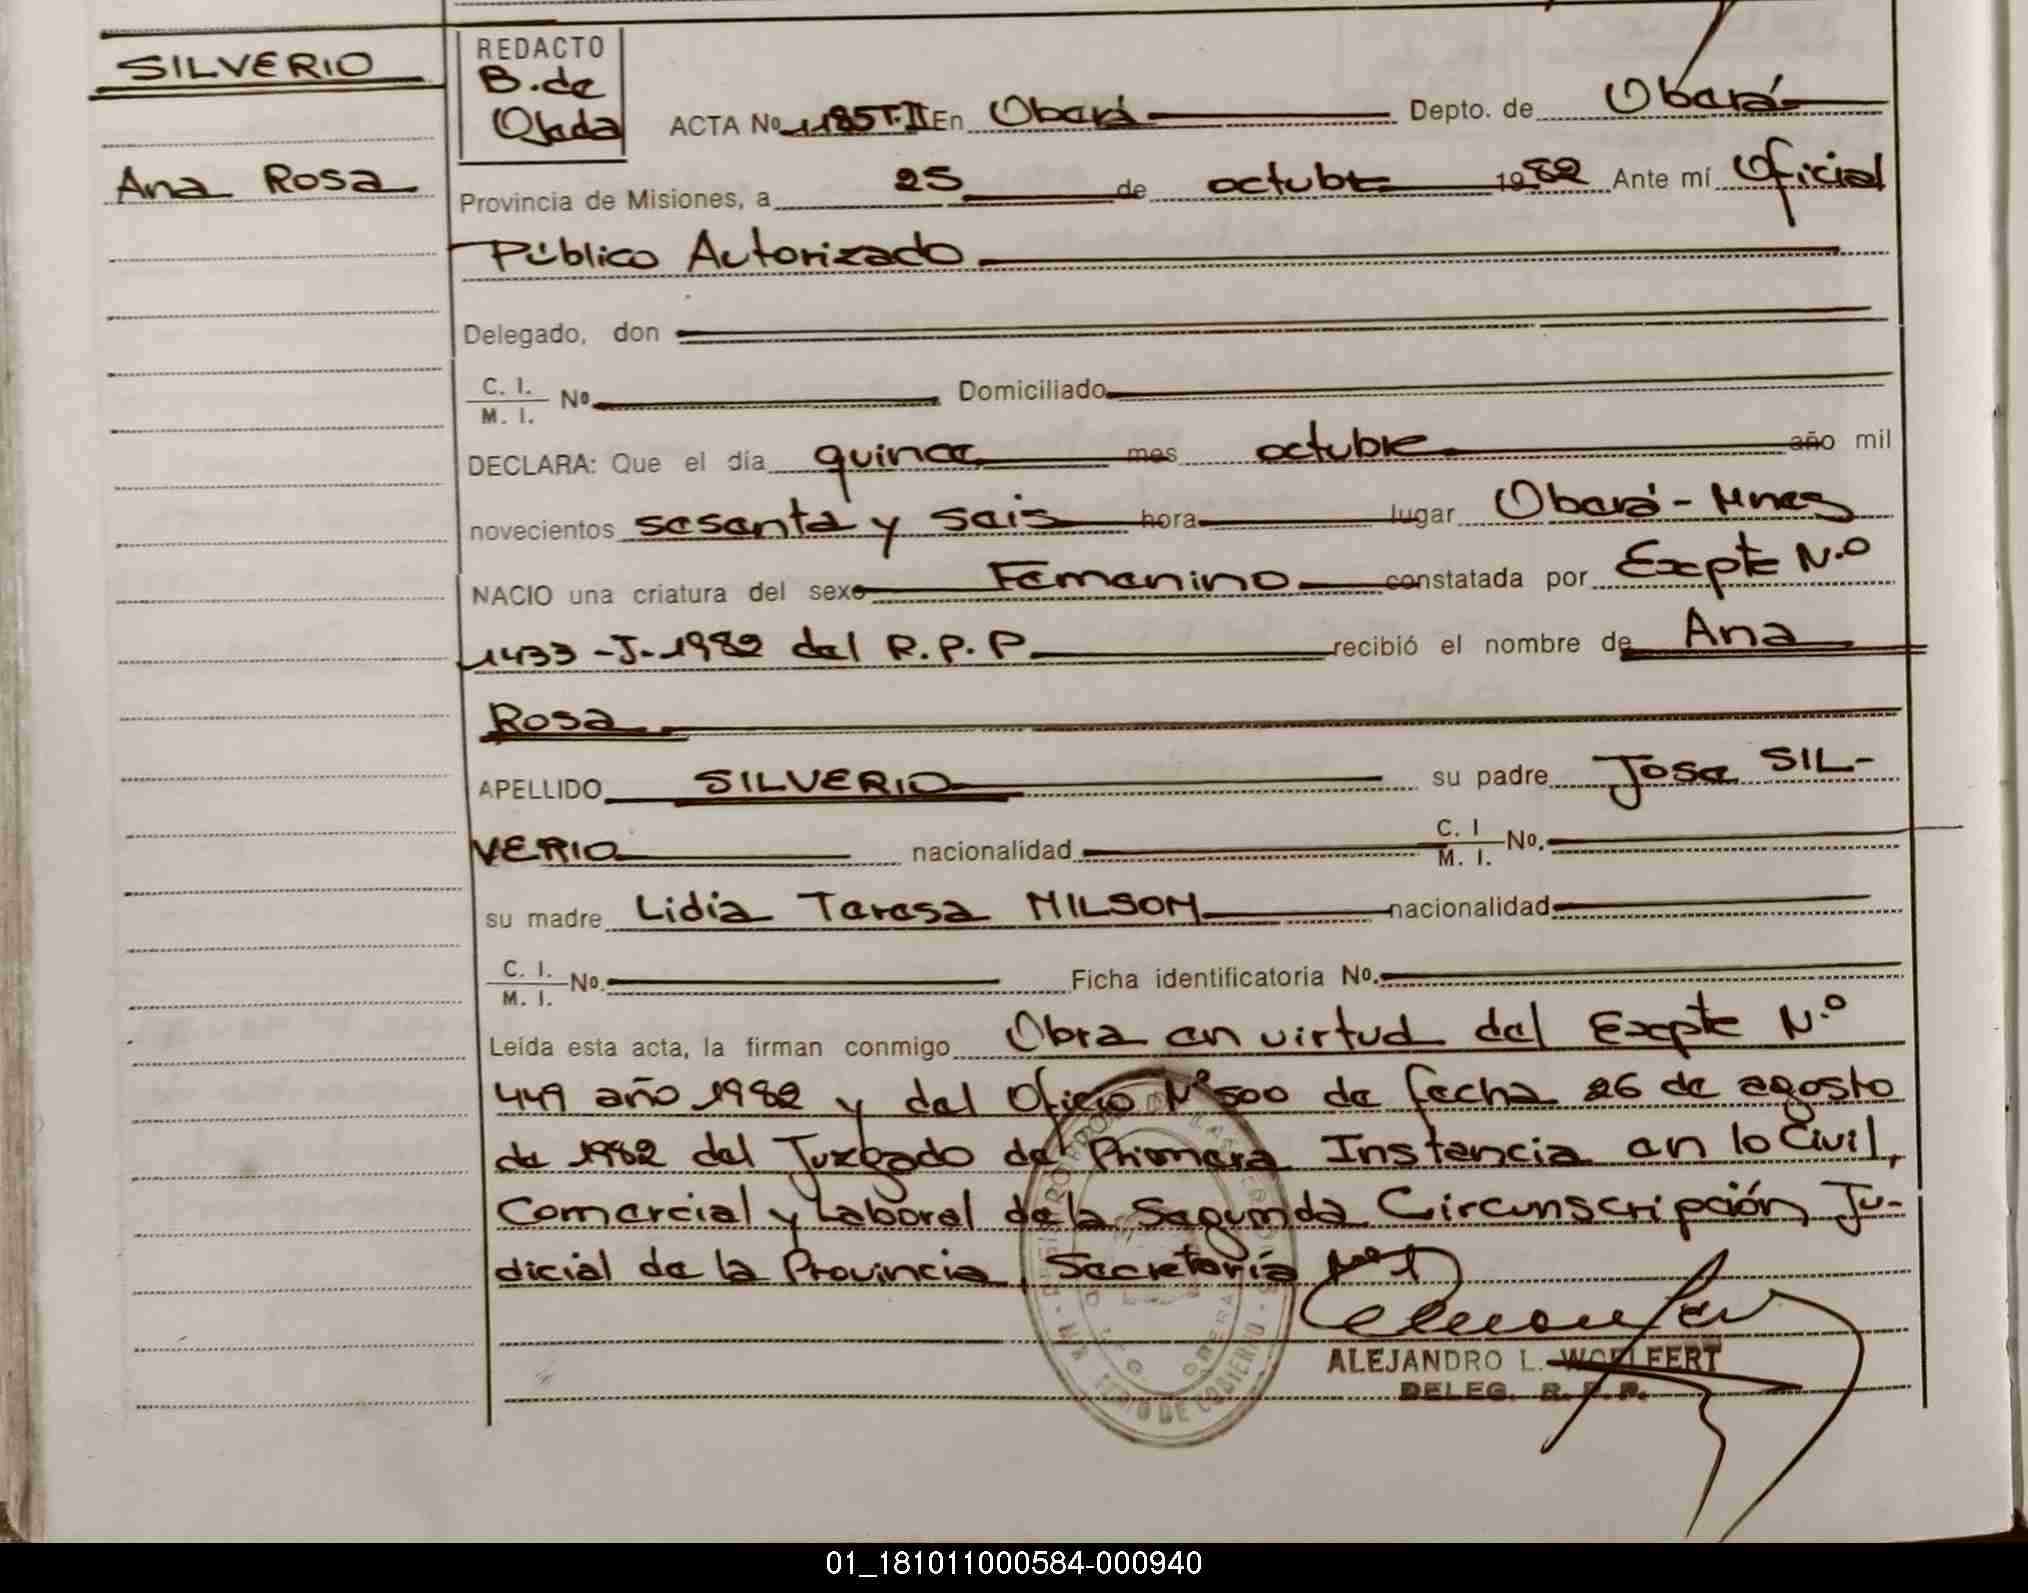 SILVERIO
Ana Rosa
REDACTO
B. de
Ojeda
ACTA Nº 1185T.II En Oberá Depto. de Oberá
Provincia de Misiones, a 25 de octubre 1982 Ante mí Oficial
Público Autorizado
Delegado, don
C. I.
M. I. Nº Domiciliado
DECLARA: Que el día quince mes octubre año mil
novecientos sesenta y seis hora lugar Oberá - Mnes
NACIO una criatura del sexo Femenino constatada por Expte N.º
1433 - J - 1982 del R. P. P. recibió el nombre de Ana
Rosa
APELLIDO SILVERIO su padre Jose SIL-
VERIO nacionalidad C. I. M. I. No.
su madre Lidia Teresa MILSON nacionalidad
C. I.
M. I. No. Ficha identificatoria No.
Leída esta acta, la firman conmigo Obra en virtud del Expte N.º
449 año 1982 y del Oficio Nº 500 de fecha 26 de agosto
de 1982 del Juzgado de Primera Instancia en lo Civil,
Comercial y Laboral de la Segunda Circunscripción Ju-
dicial de la Provincia, Secretaría Nº 1
ALEJANDRO L. WOELFERT
DELEG. R. P. P.
01_181011000584-000940